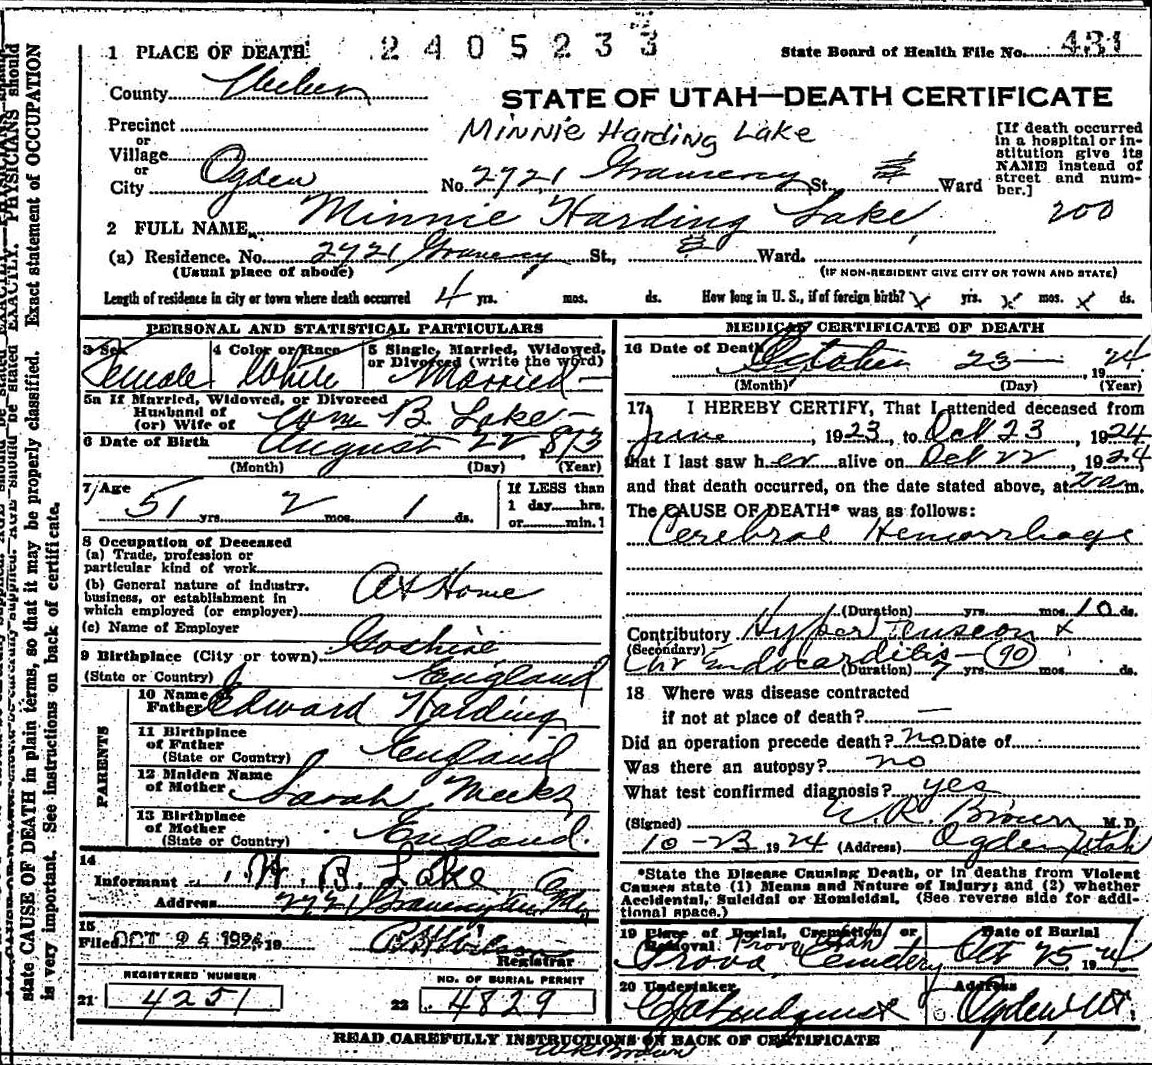 1 PLACE OF DEATH 2405233 State Board of Health File No. 431
County Weber
STATE OF UTAH—DEATH CERTIFICATE
Precinct
or
Village
or
City Ogden
Minnie Harding Lake
No. 2721 Gramercy St. Ward
[If death occurred
in a hospital or in-
stitution give its
NAME instead of
street and num-
ber.]
200
2 FULL NAME Minnie Harding Lake,
(a) Residence. No. 2721 Gramercy St., Ward.
(Usual place of abode) (IF NON-RESIDENT GIVE CITY OR TOWN AND STATE)
Length of residence in city or town where death occurred 4 yrs. mos. ds. How long in U. S., if of foreign birth? x yrs. x mos. x ds.
PERSONAL AND STATISTICAL PARTICULARS
3 Sex Female
4 Color or Race White
5 Single, Married, Widowed,
or Divorced (write the word)
Married
5a If Married, Widowed, or Divorced
Husband of
(or) Wife of Wm B. Lake
6 Date of Birth August 22, 1873
(Month) (Day) (Year)
7 Age 51 yrs. 2 mos. 1 ds.
If LESS than
1 day hrs.
or min.?
8 Occupation of Deceased
(a) Trade, profession or
particular kind of work
(b) General nature of industry,
business, or establishment in
which employed (or employer)
At Home
(c) Name of Employer
9 Birthplace (City or town) Goshire
(State or Country) England
PARENTS
10 Name of
Father Edward Harding
11 Birthplace
of Father
(State or Country) England
12 Maiden Name
of Mother Sarah Meeks
13 Birthplace
of Mother
(State or Country) England.
14
Informant W. B. Lake
Address 2721 Gramercy Ave Ogden
15
Filed OCT 25 1924 19
Registrar
REGISTERED NUMBER
21 4251
NO. OF BURIAL PERMIT
22 4829
MEDICAL CERTIFICATE OF DEATH
16 Date of Death October 23 1924
(Month) (Day) (Year)
17 I HEREBY CERTIFY, That I attended deceased from
June, 1923, to Oct 23, 1924
that I last saw her alive on Oct 22, 1924
and that death occurred, on the date stated above, at m.
The CAUSE OF DEATH* was as follows:
Cerebral Hemorrhage
(Duration) yrs. mos. 10 ds.
Contributory Hypertension +
(Secondary)
Chr Endocarditis (90)
(Duration) yrs. mos. ds.
18 Where was disease contracted
if not at place of death? —
Did an operation precede death? no Date of
Was there an autopsy? no
What test confirmed diagnosis? yes
(Signed) W. R. Brown M. D.
10-23 1924 (Address) Ogden Utah
*State the Disease Causing Death, or in deaths from Violent
Causes state (1) Means and Nature of Injury; and (2) whether
Accidental, Suicidal or Homicidal. (See reverse side for addi-
tional space.)
19 Place of Burial, Cremation, or
Removal Provo Utah
Provo Cemetery
Date of Burial
Oct 25, 1924
20 Undertaker
Address
Ogden Ut.
READ CAREFULLY INSTRUCTIONS ON BACK OF CERTIFICATE
WR Brown
state CAUSE OF DEATH in plain terms, so that it may be properly classified. Exact statement of OCCUPATION
is very important. See instructions on back of certificate.